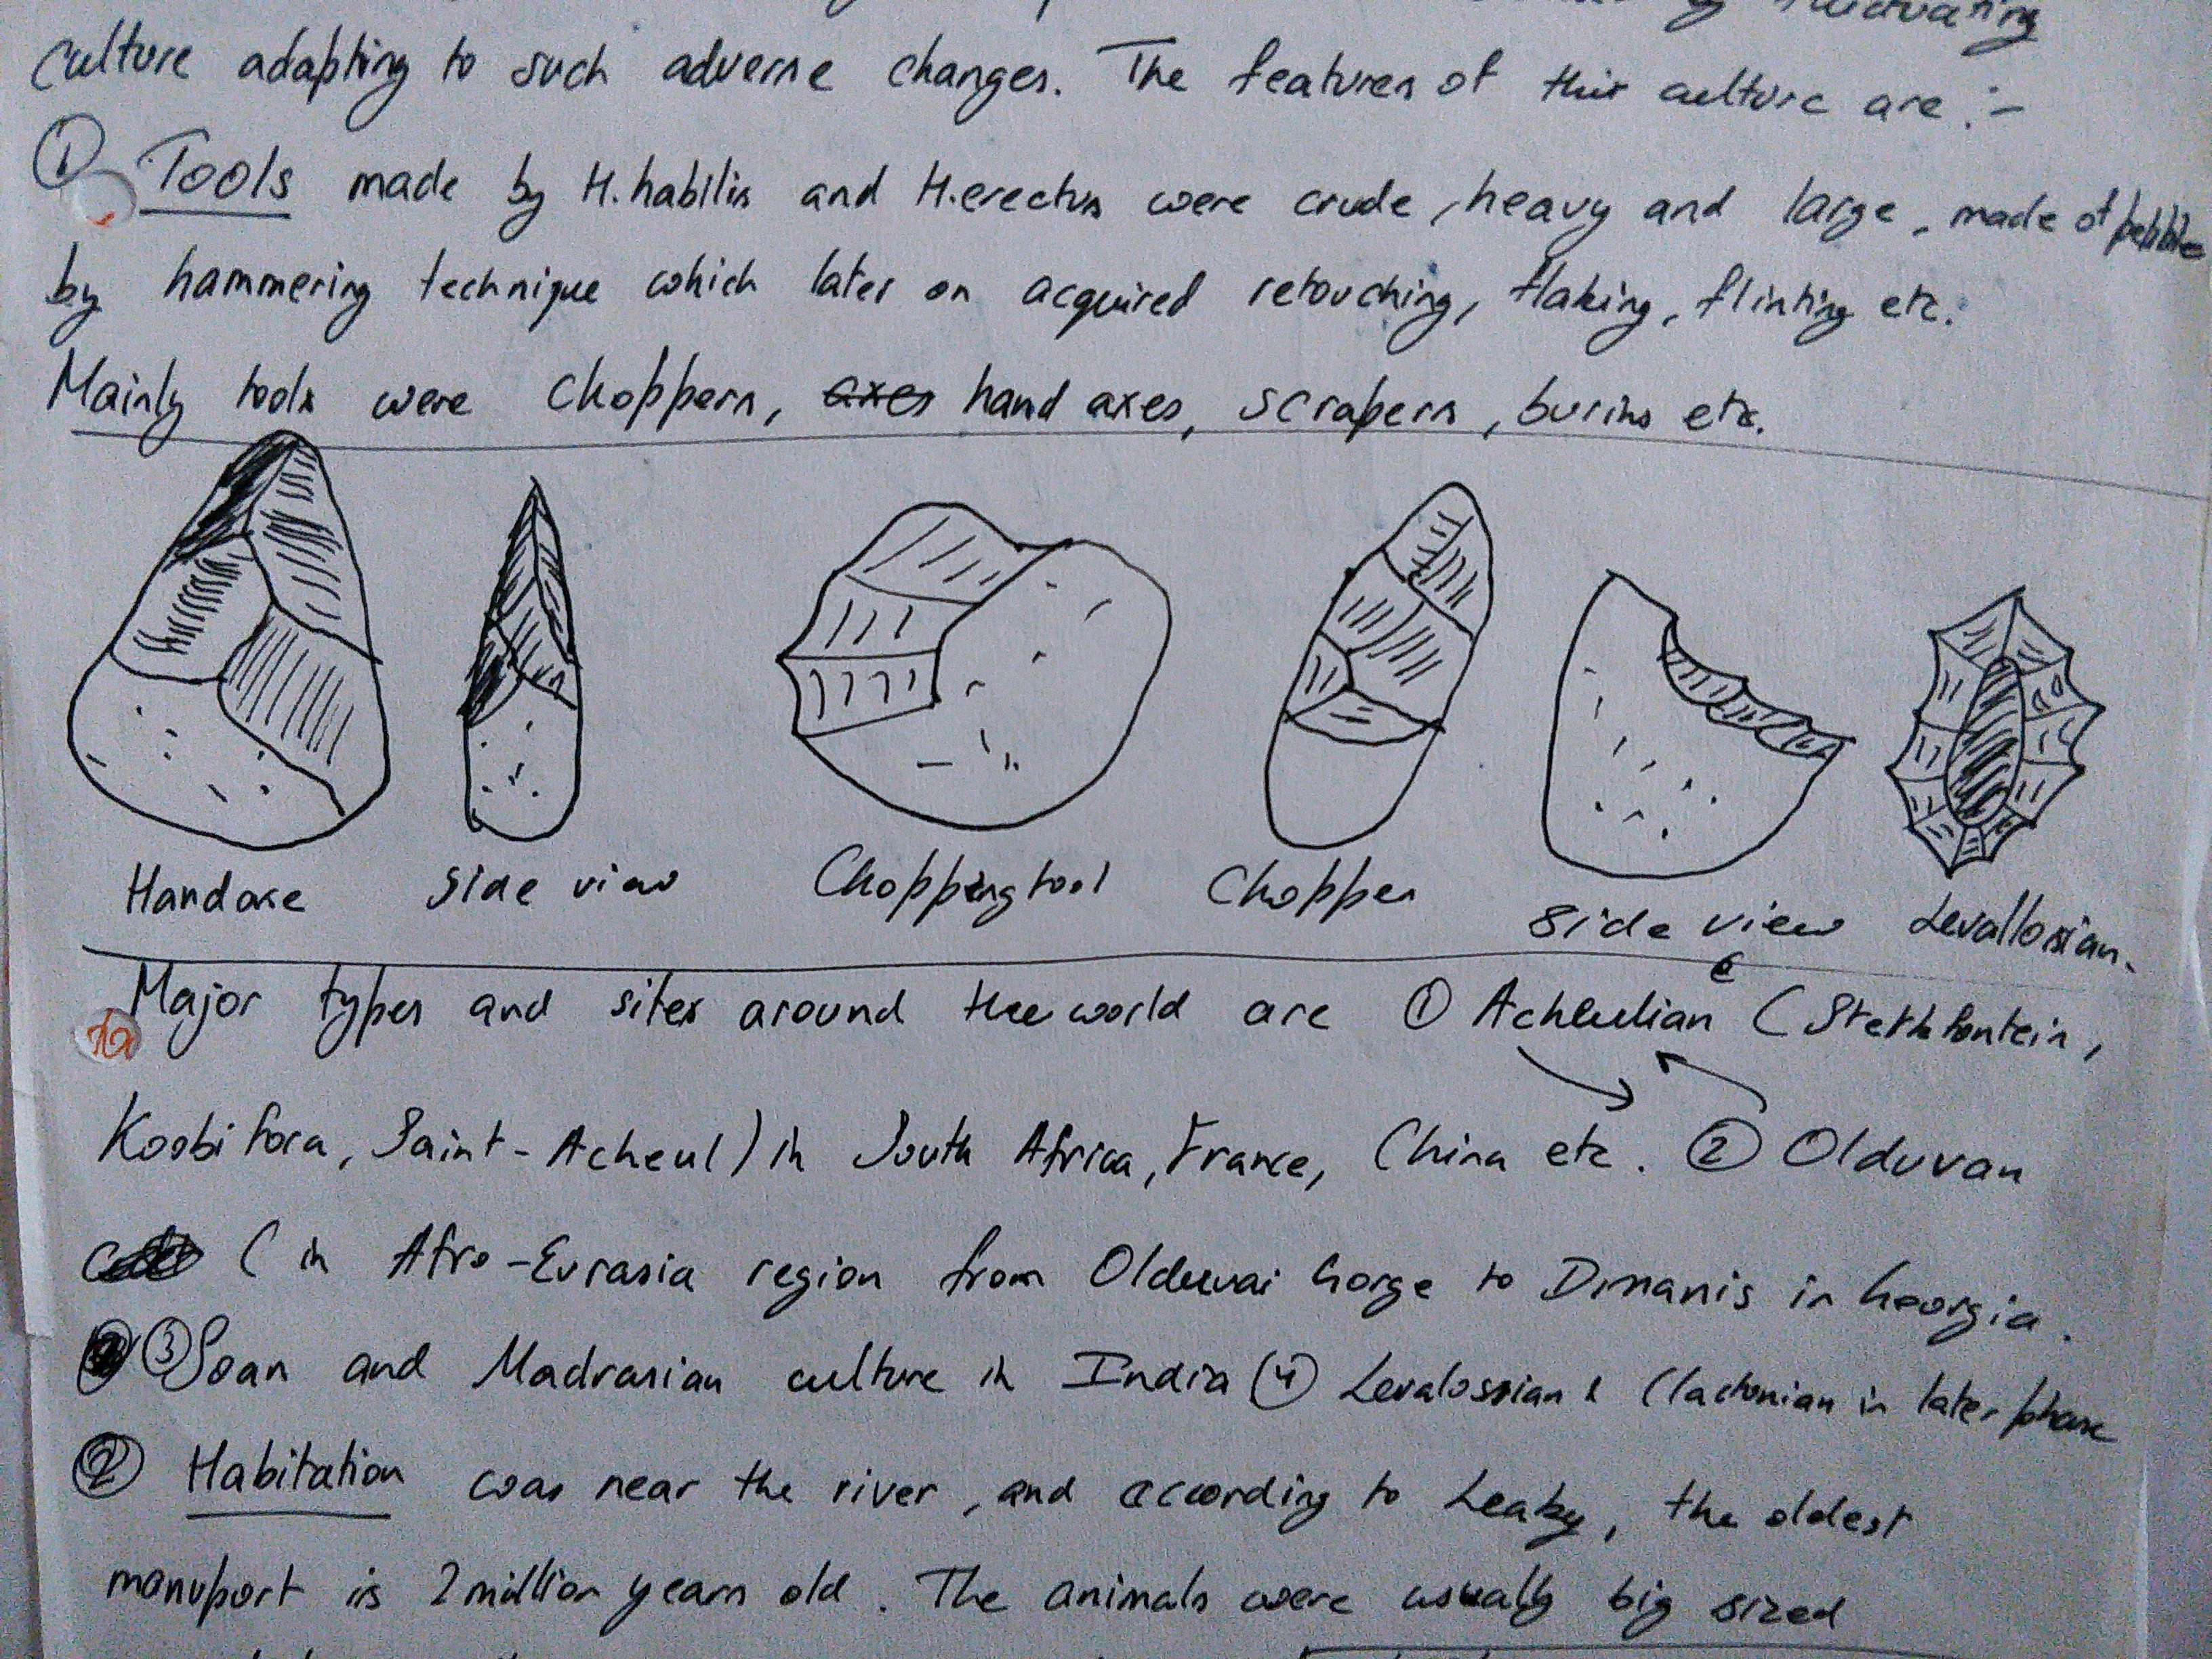 fluctuating
culture adapting to such adverse changes. The features of this culture are :-
① Tools made by H.habilis and H.erectus were crude, heavy and large, made of pebble
by hammering technique which later on acquired retouching, flaking, flinting etc.
Mainly tools were choppers, axes hand axes, scrapers, burins etc.
Handaxe side view Chopping tool Chopper Side view Levallosian.
Major types and sites around the world are ① Acheulian (Sterkfontein,
Koobi Fora, Saint-Acheul) in South Africa, France, China etc. ② Olduvan
(in Afro-Eurasia region from Olduvai Gorge to Dmanis in Georgia.
③ Soan and Madrasian culture in India ④ Levalossian & Clactonian in later phase
② Habitation was near the river, and according to Leaky, the oldest
manuport is 2 million years old. The animals were usually big sized